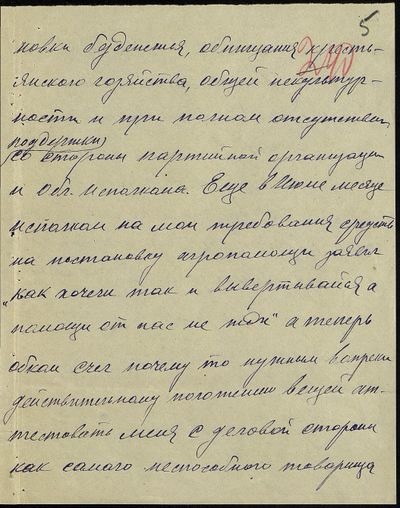 5
новки бедденсия, обнищания кресть-
янского хозяйства, общей некультур-
ности и при полном отсутствии
поддержки
со стороны партийной организации
и Обл. исполкома. Еще в Июне месяце
исполком на мои требования средств
на постановку агропомощи заявил
"как хочеш так и вывертывайся а
помощи от нас не жди" а теперь
обком счел почему то нужным вопреки
действительному положению вещей ат-
тестовать меня с деловой стороны
как самого неспособного товарища